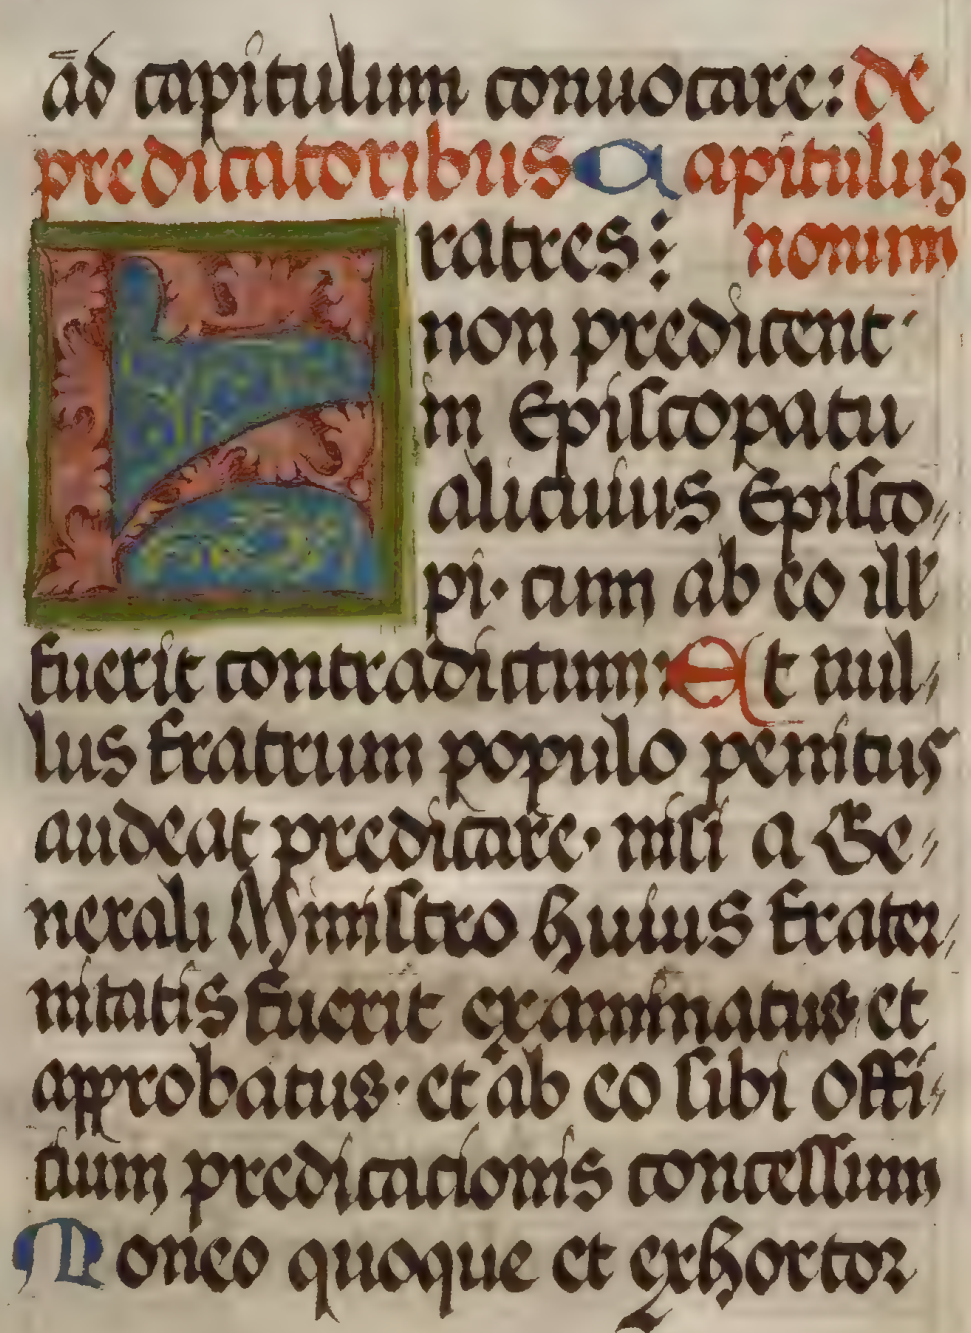 ad capitulum conuocare: de
predicatoribus Capituluz
Fratres: nonum
non predicent
in Episcopatu
alicuius Episco,
pi. cum ab eo ill'
fuerit contradictum: Et nul,
lus fratrum populo penitus
audeat predicare. nisi a Ge,
nerali Ministro huius frater,
nitatis fuerit examinatus et
approbatus. et ab eo sibi offi,
tium predicationis concessum
Moneo quoque et exhortor